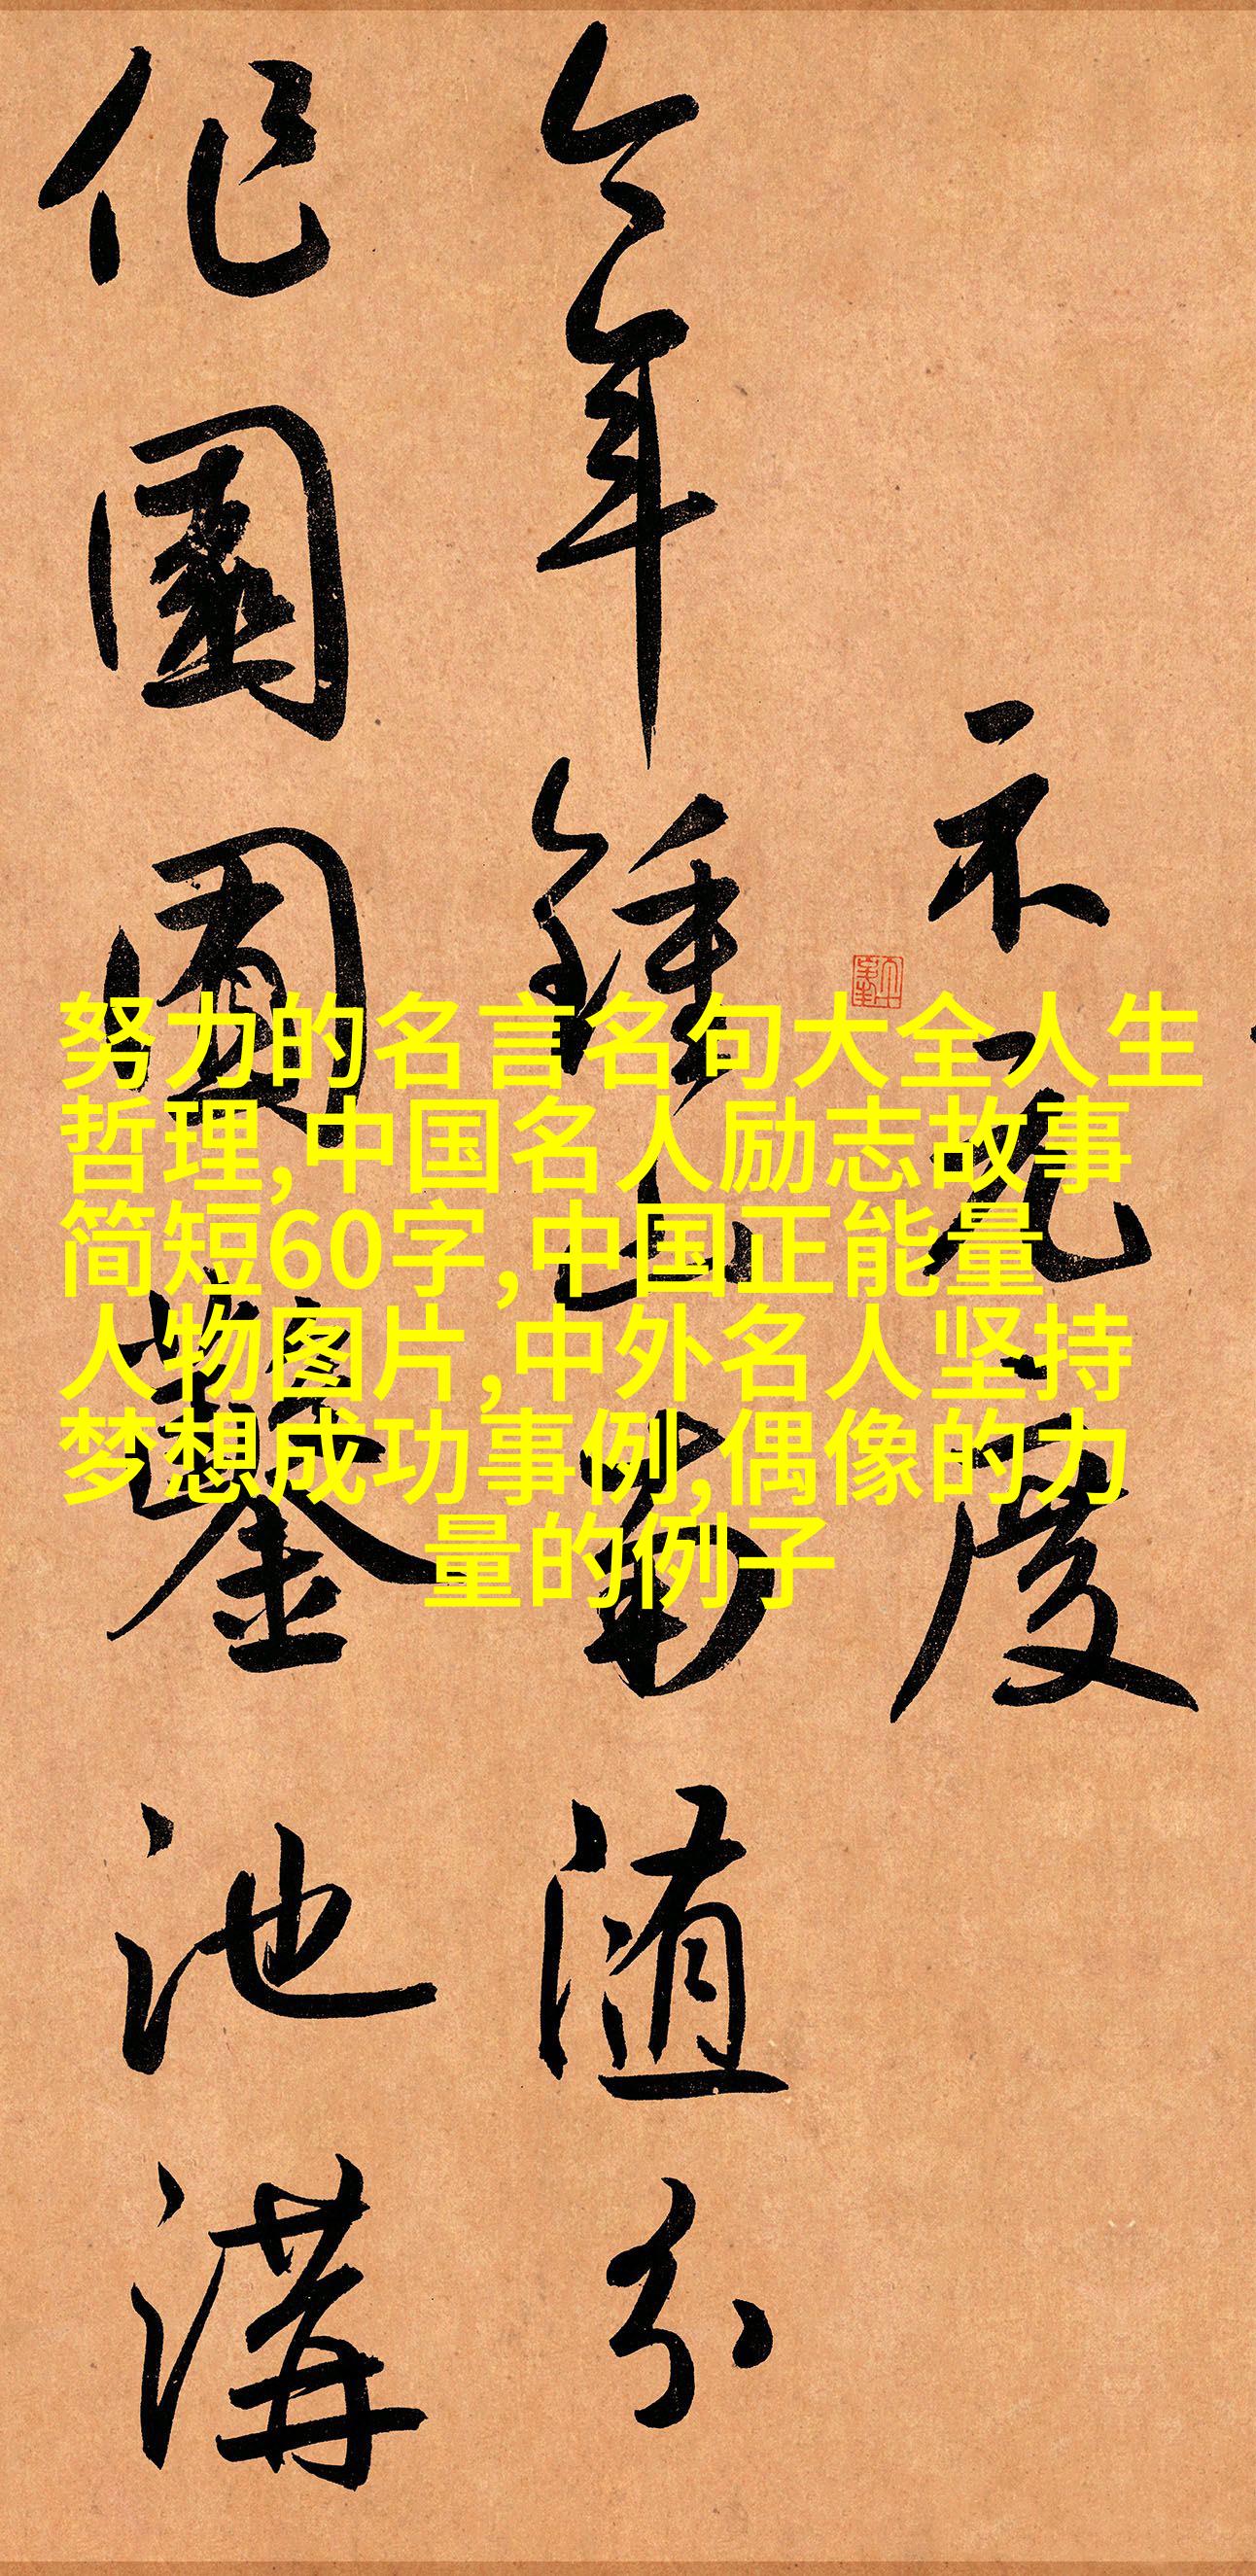 努力的名言名句大全人生
哲理,中国名人励志故事
简短60字,中国正能量
人物图片,中外名人坚持
梦想成功事例,偶像的力
量的例子
示元度
今年鍾山南
随分
作園囿
鑿池溝